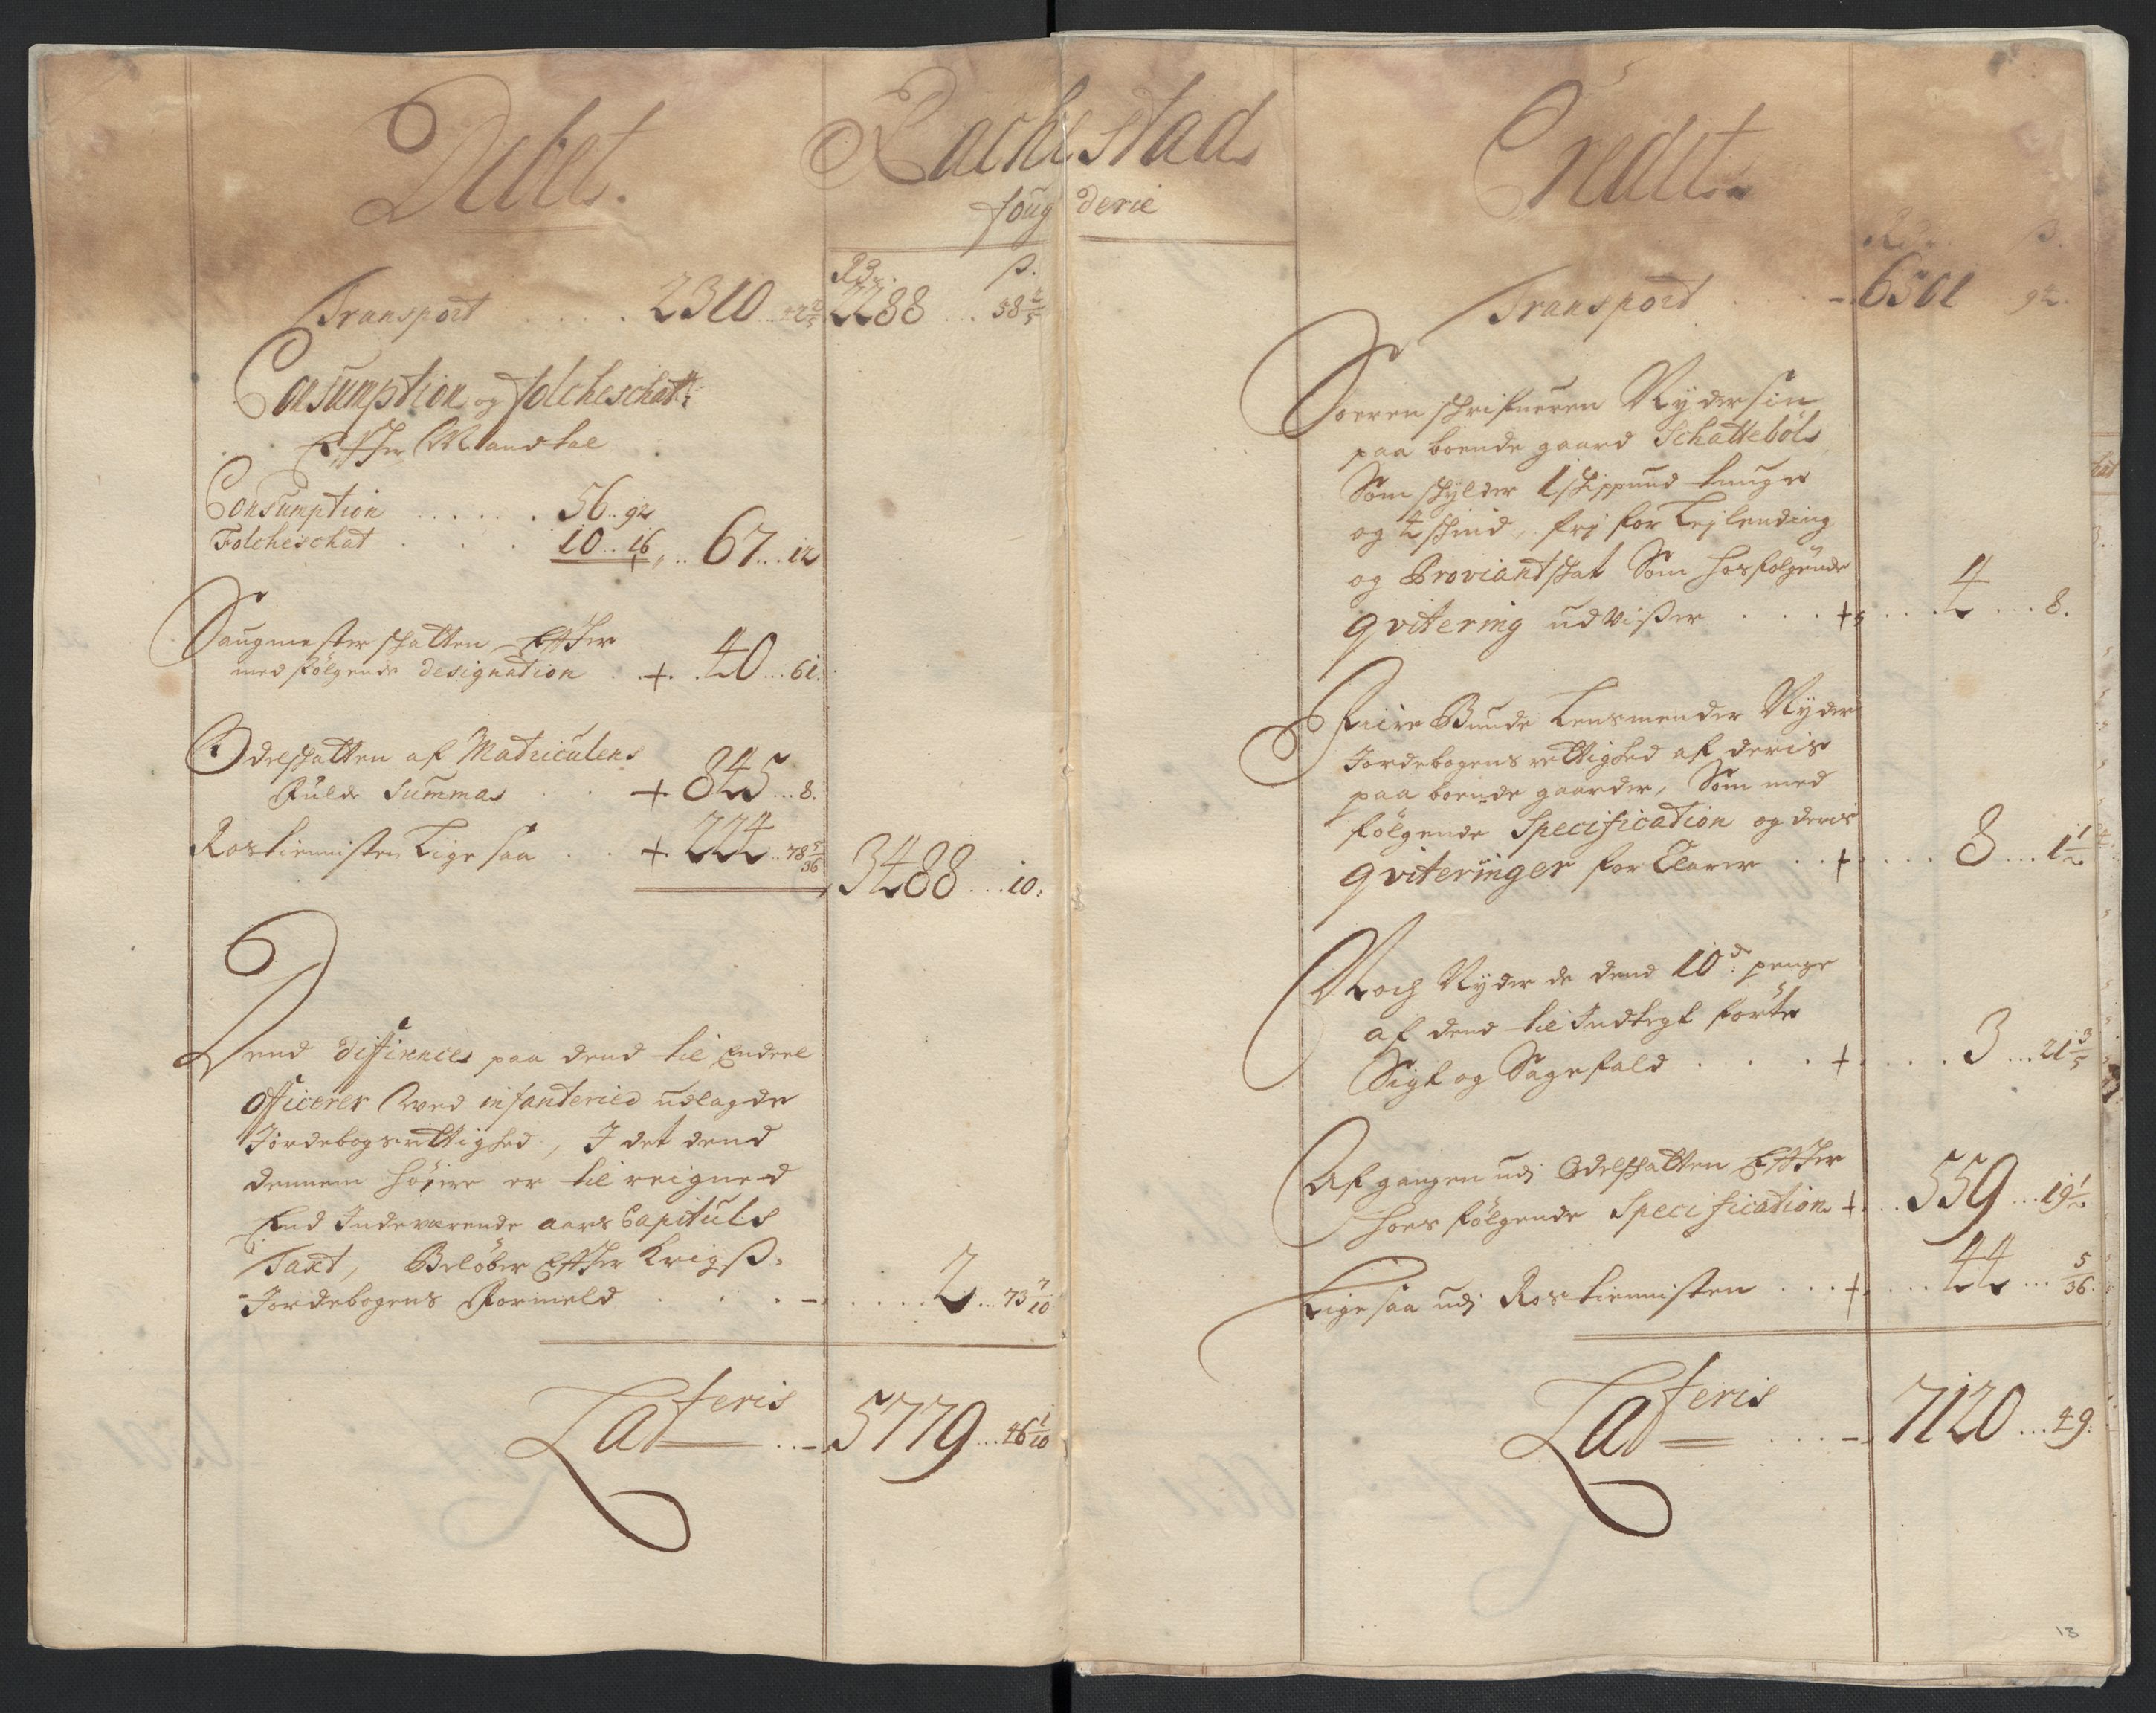 Debet.
Rackestads
fougderie
Rdr. ß.
Transport . . . . . 2310 .. 42 2/5 2288 ... 58 2/5
Consumption og folckeschatt.
Efter Mandtal
Consumption . . . . . . 56 .. 92
Folckeschat . . . 10 .. 16, .. 67 ... 12
Saugmester schatten Efter
med følgende designation . . + . . 40 ... 61.
Odelschatten af Matriculens
Fulde Summa . . + 845 ... 8.
Rostiennisten Lige saa . . + 224 .. 78 5/36 3488 ... 10.
Dend differences paa dend til Endeel
officerer ved infanteried udlagde
Jordebogs rettighed, I det dend
dennem høiere er til reigned
End Indeværende aars Capituls
Taxt, Beløber Efter Krigß
Jordebogens Formeld . . . . – . . . . 2 ... 73 7/10
Lateris . . – 5779 ... 46 1/10
Credit.
Rdr. ß.
Transport . . . – 6501 .. 92.
Soeren schrifueren Nyder sin
paa boende gaard Schattebøl
Som schylder 1 schippund tunge
og 4 schind, fri for Leylending
og Proviantschat Som hosfølgende
qvitering udviser . . . + . . . 4 ... 8.
Fiire Bunde Lensmender Nyder
Jordebogens rettighed af deris
paa boende gaarder, Som med
følgende Specification og deris
qviteringer forklarer . . + . . . . 8 ... 1 1/2
Noch Nyder de dend 10de penge
af dend til Indtegt førte
Sigt og Sagefald . . . + . . . . 3 ... 21 3/5
Afgangen udj Odelschatten Efter
hoes følgende Specification + . . 559 ... 19 1/2
Lige saa udj Rostiennisten . . . + . . . 44 ... 5/36.
Lateris . . . – 7120 ... 49.
13